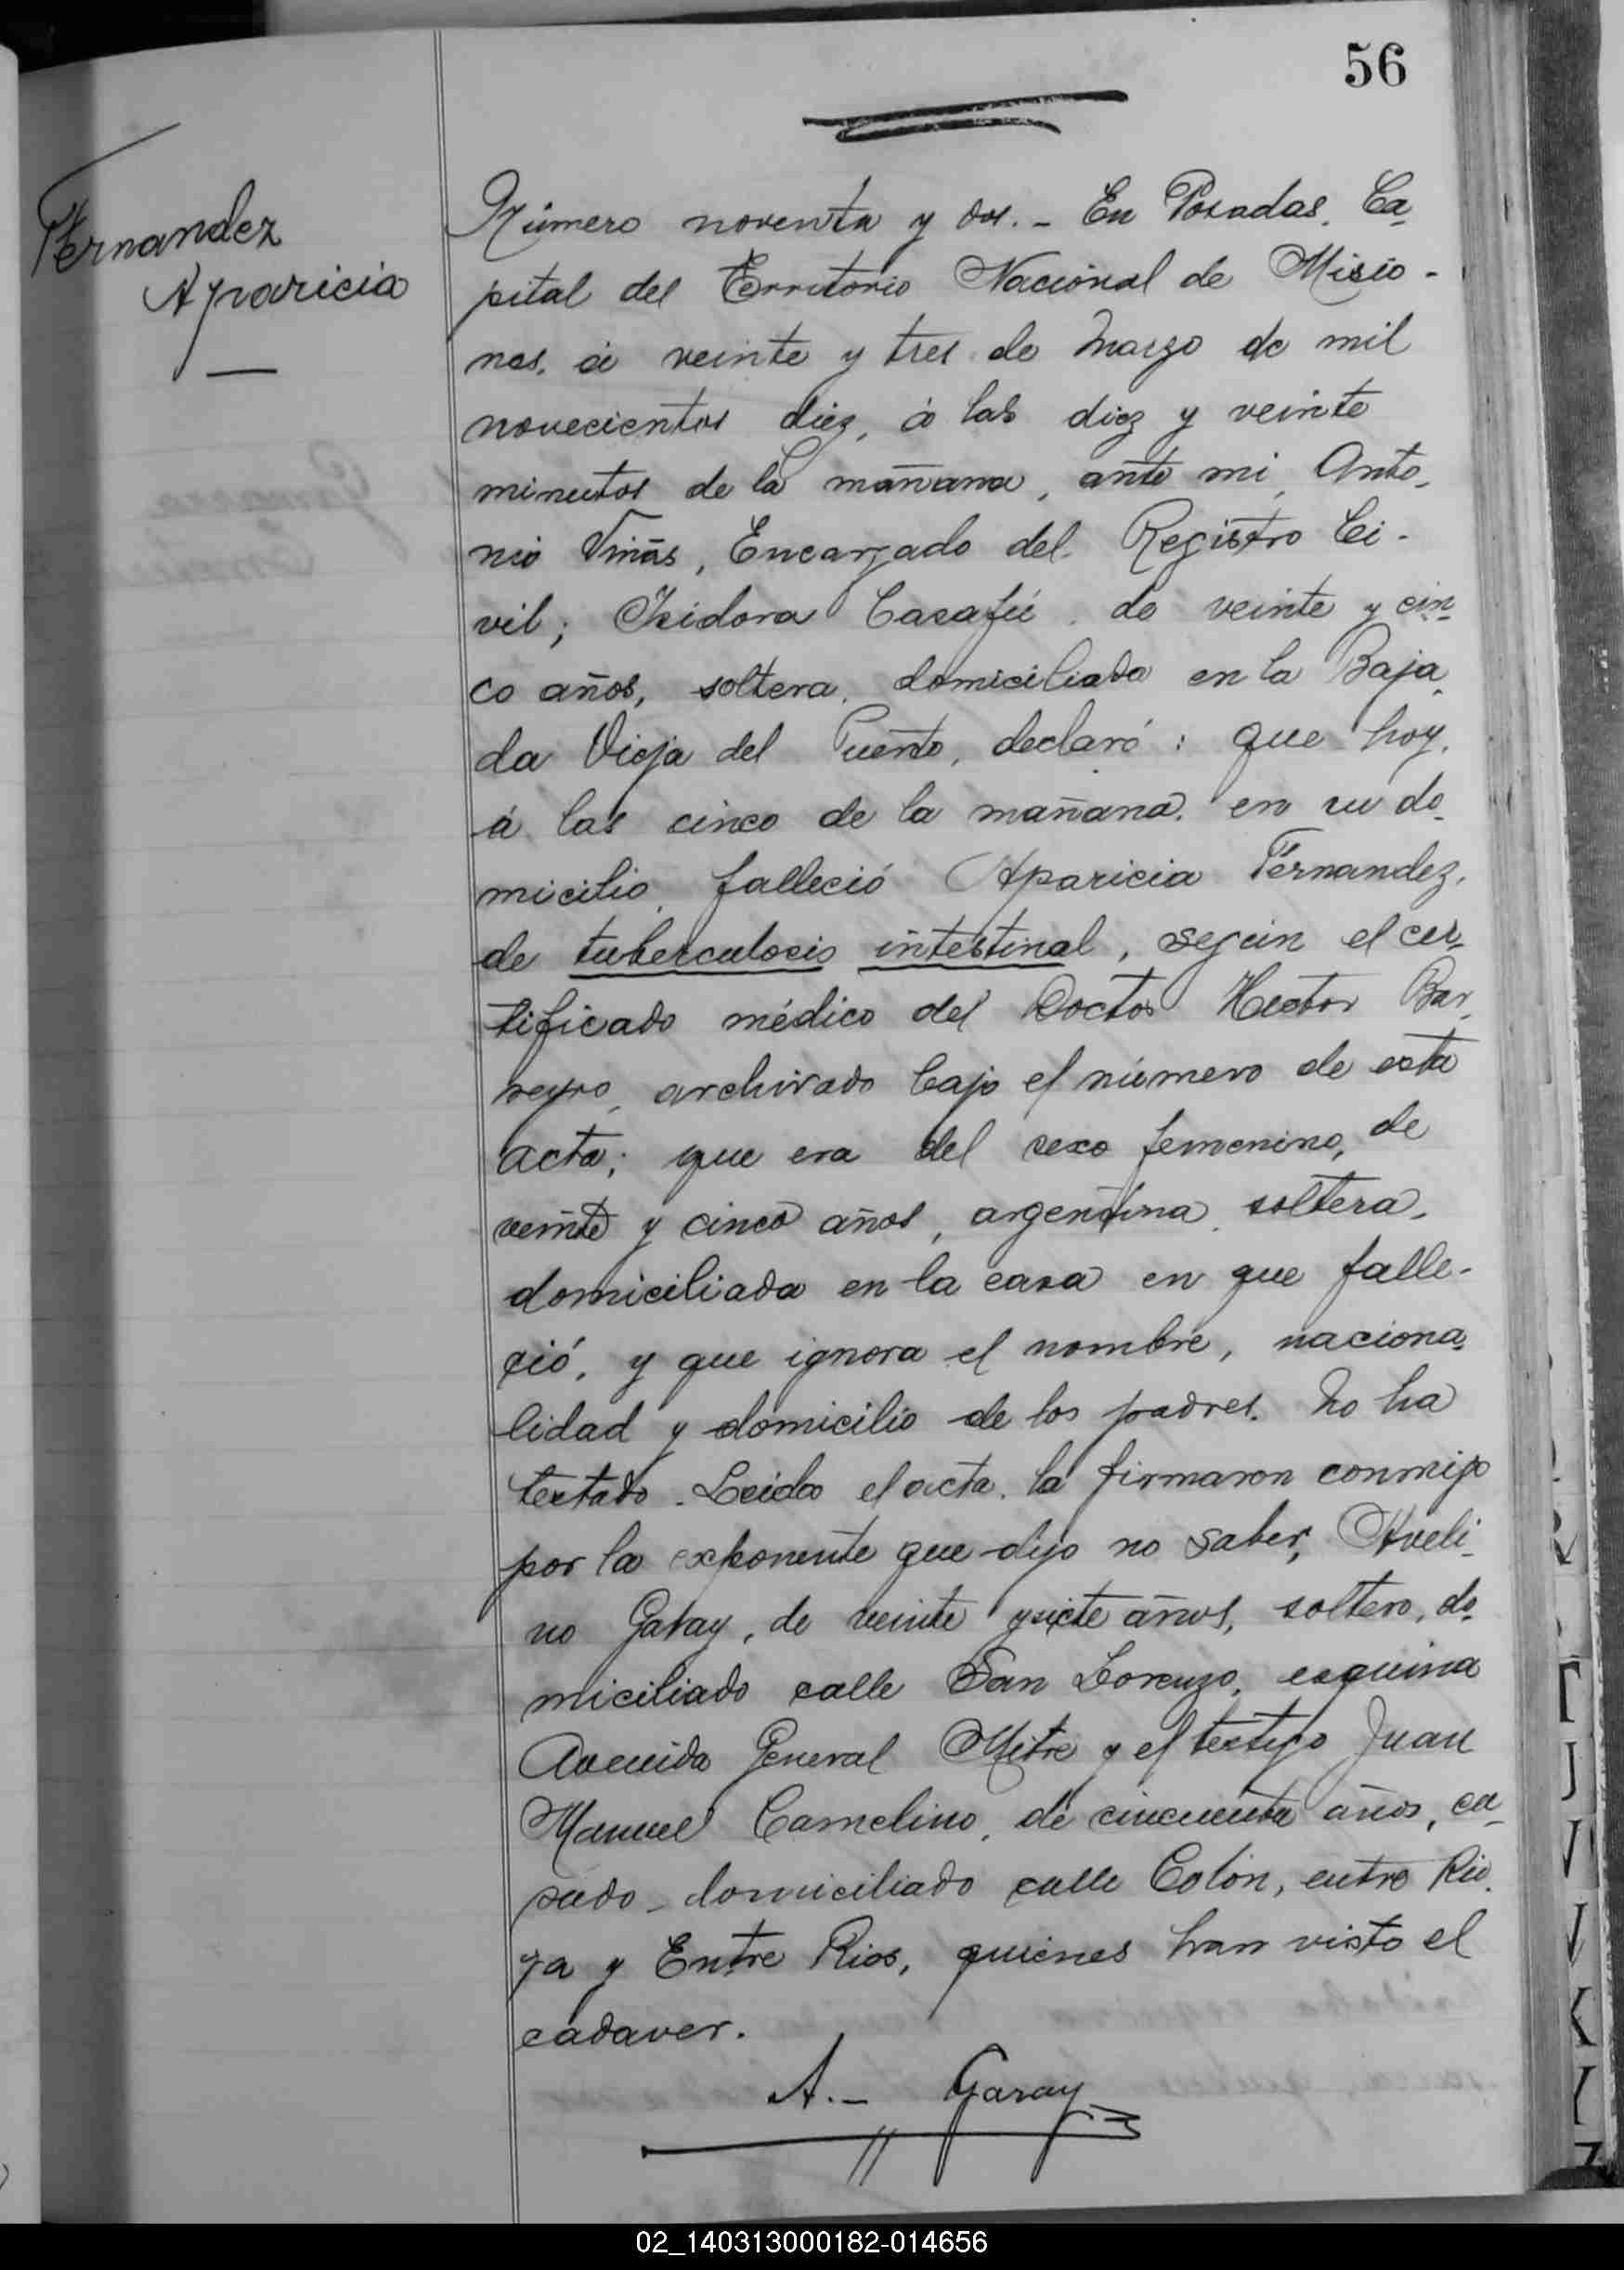 56
Fernandez
Aparicia
Número noventa y dos. - En Posadas, Ca-
pital del Territorio Nacional de Misio-
nes, á veinte y tres de Marzo de mil
novecientos diez, á las diez y veinte
minutos de la mañana, ante mi, Anto-
nio Viñas, Encargado del Registro Ci-
vil; Isidora Casafú, de veinte y cin-
co años, soltera, domiciliada en la Baja-
da Vieja del Puerto, declaró: que hoy,
á las cinco de la mañana, en su do-
micilio, falleció Aparicia Fernandez,
de tuberculosis intestinal, según el cer-
tificado médico del Doctor Hector Bar-
reyro, archivado bajo el número de esta
acta; que era del sexo femenino, de
veinte y cinco años, argentina, soltera,
domiciliada en la casa en que falle-
ció, y que ignora el nombre, naciona-
lidad y domicilio de los padres. No ha
testado. Leida el acta, la firmaron conmigo
por la exponente que dijo no saber, Aveli-
no Garay, de veinte y siete años, soltero, do-
miciliado calle San Lorenzo, esquina
Avenida General Mitre y el testigo Juan
Manuel Camelino, de cincuenta años, ca-
sado, domiciliado calle Colón, entre Rio-
ja y Entre Rios, quienes han visto el
cadaver.
A. - Garay
02_140313000182-014656